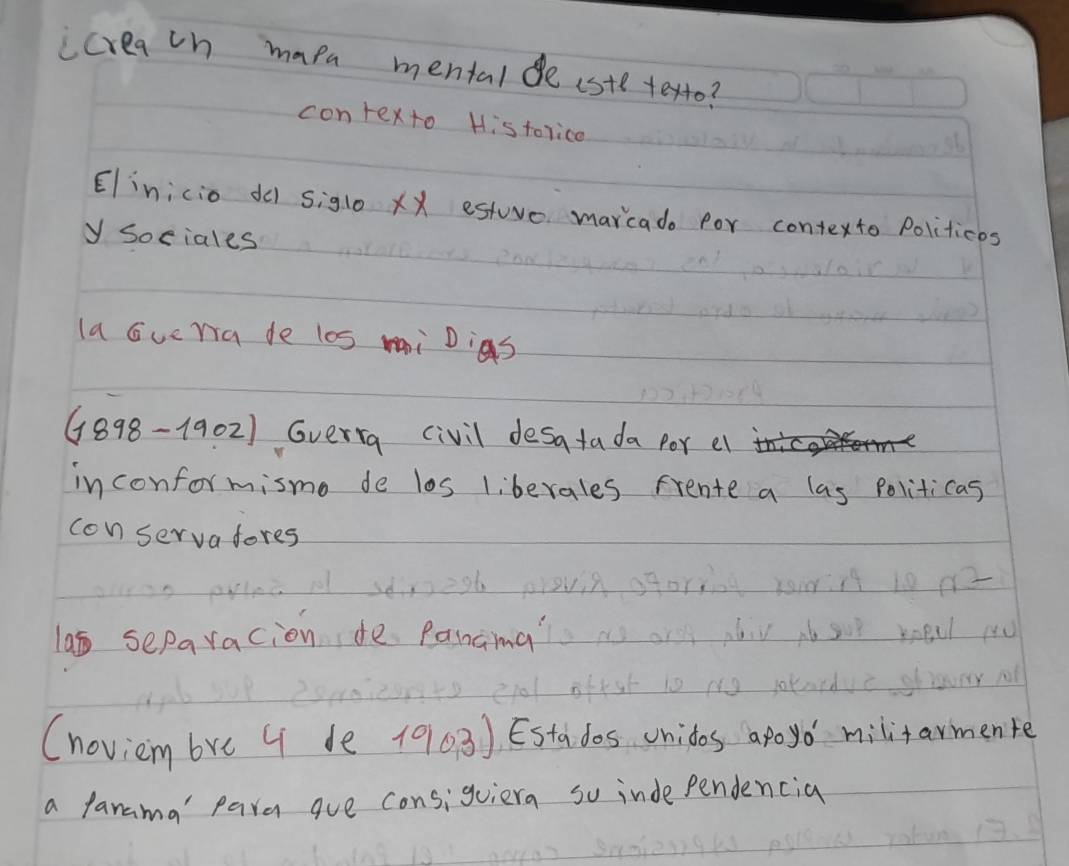 ¿Crea un mapa mental de este texto?
contexto Historico
El inicio del siglo XX estuvo marcado por contexto Politicos
y sociales
la Guerra de los mi Dias
(1898-1902) Guerra civil desatada por el
inconformismo de los liberales frente a las politicas
conservadores
las separación de Panamá
(noviembre 4 de 1903) Estados unidos apoyó militarmente
a Panamá para que consiguiera su independencia